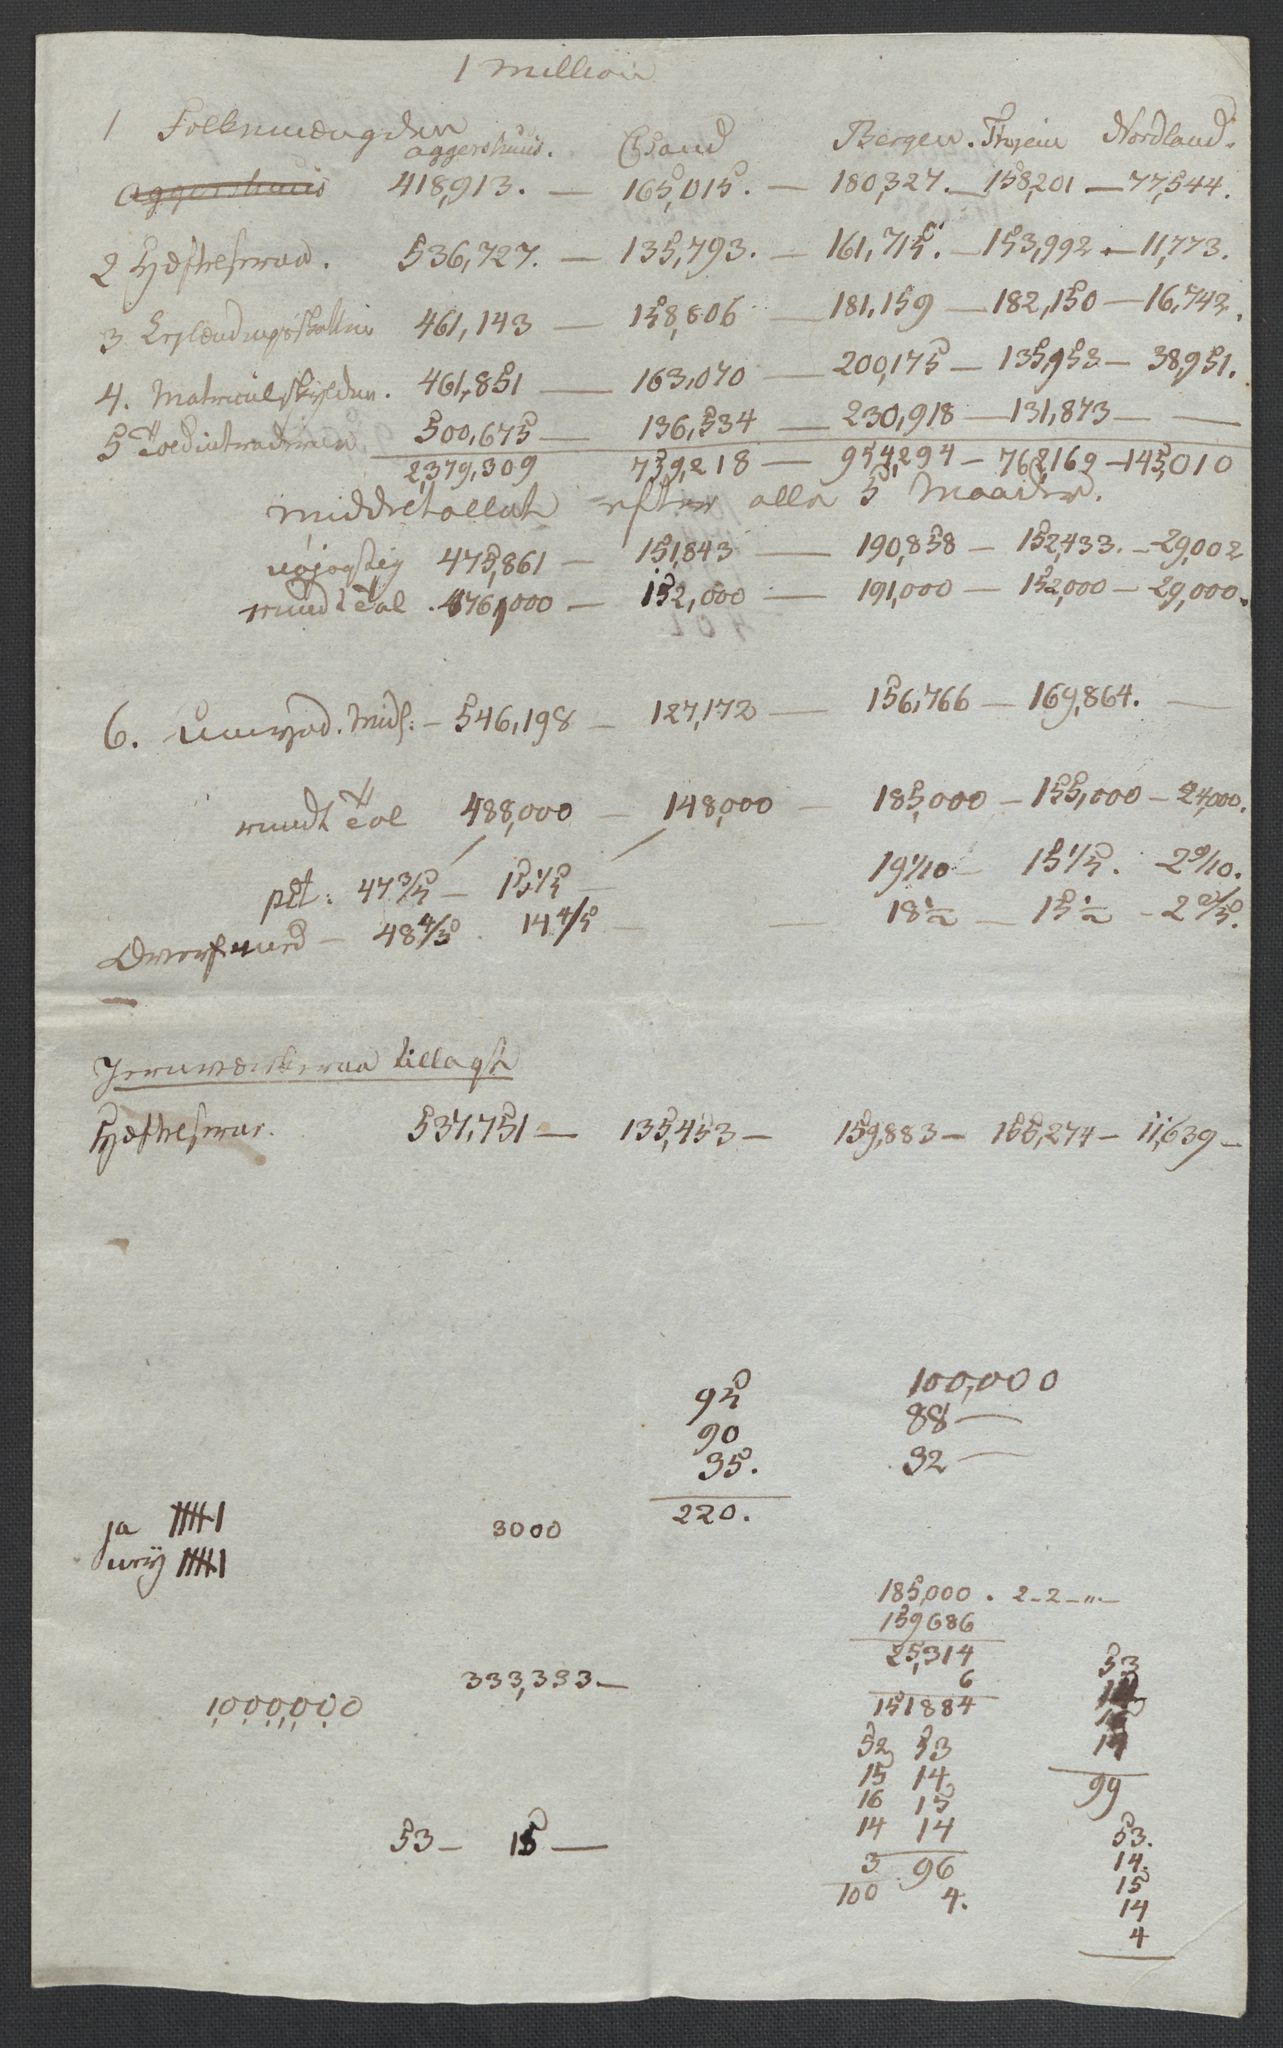 1 Million
1 Folkemængden
Aggershuus. Chsand Bergen. Throjem Nordland.
Aggershuus 418,913. — 165,015. — 180,327. — 158,201 — 77,544.
2 536,727. — 135,793. — 161,715. — 153,992 — 11,773.
3 461,143 — 158,806 — 181,159 — 182,150 — 16,742.
4. Matriculskylden. 461,851 — 163,070 — 200,175 — 135,953 — 38,951.
5 500,675 — 136,534 — 230,918 — 131,873 — —
2,379,309 759,218 — 954,294 — 762,169 — 145,010
Middeltallet efter alle 5 Maader.
nøjagtig 475,861 — 151,843 — 190,858 — 152,433. — 29,002
rundt Tal . 476,000 — 152,000 — 191,000 — 152,000 — 29,000.
6. — 546,198 — 127,172 — 156,766 — 169,864. —
rundt Tal 488,000 — 148,000 — 185,000 — 155,000 — 24,000.
pCt: 47 3/5 — 15 1/5 — 19 1/10 — 15 1/5. 2 9/10.
48 4/5 . 14 4/5 — — 18 1/2 — 15 1/2 — 2 2/5.
tillagt
537,751 — 135,453 — 159,883 — 155,274 — 11,639 —
95 100,000
90 88 —
35. 32 —
220.
ja 3000
neij
185,000 . 2 — 2 — " —
159686
25,314
6
151884
333,333 —
1,000,000
53
14
99
52 53
15 14
16 15
14 14
3 96
100 4.
53 — 15 —
53.
14.
15
14
4